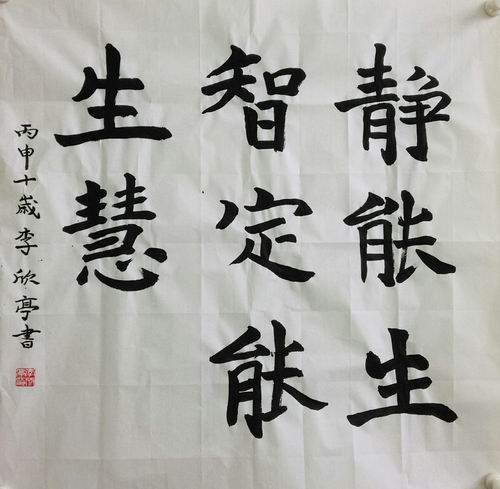 静能生
智定能
生慧
丙申十歳李欣亭書